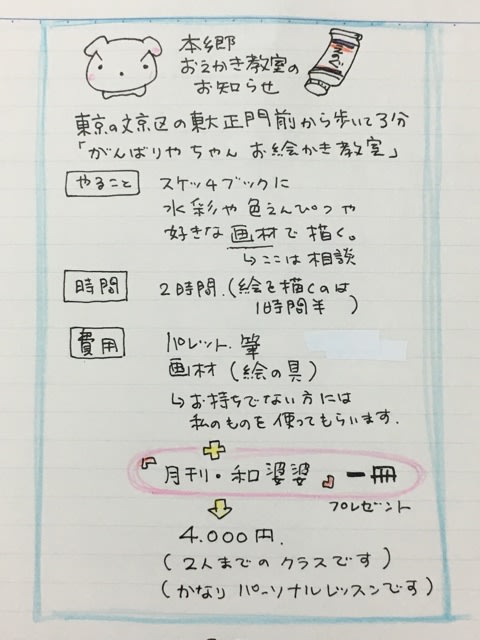 本郷
おえかき教室の
お知らせ
えのぐ
東京の文京区の東大正門前から歩いて3分
「がんばりやちゃん お絵かき教室」
やること
スケッチブックに
水彩や色えんぴつや
好きな画材で描く。
↳ここは相談
時間
2時間.(絵を描くのは
1時間半)
費用
パレット.筆
画材(絵の具)
↳お持ちでない方には
私のものを使ってもらいます.
+
『月刊・和婆婆』一冊
プレゼント
4.000円.
(2人までのクラスです)
(かなりパーソナルレッスンです)